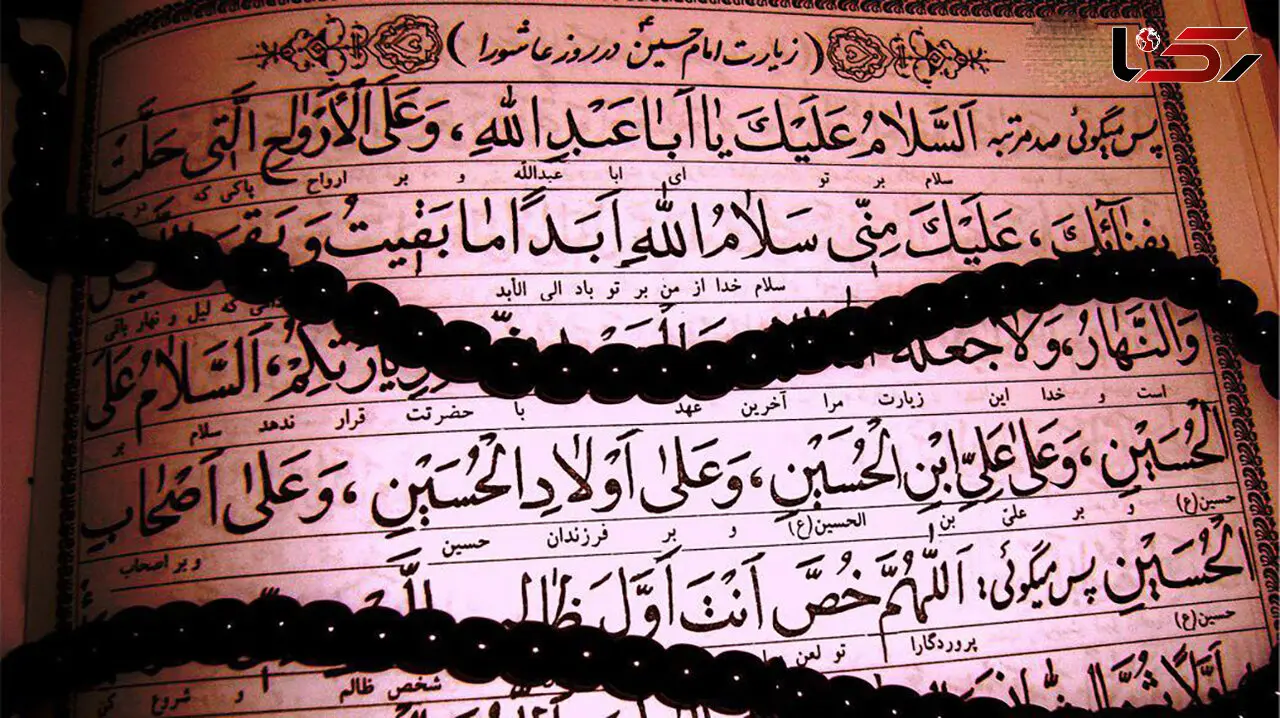 رکنا
( زیارت امام حسین ؑ در روز عاشورا )
پس میگوئی صد مرتبه اَلسَّلامُ عَلَیْكَ یا اَبا عَبْدِ اللهِ ، وَعَلَی الْاَرْواحِ الَّتی حَلَّتْ
سلام بر تو ای ابا عبدالله و بر ارواح پاکی که در
بِفِنائِكَ ، عَلَیْكَ مِنّی سَلامُ اللهِ اَبَداً ما بَقیتُ وَ بَقِیَ
سلام خدا از من بر تو باد الی الأبد که لیل و نهار باقی
وَالنَّهارُ، وَلا جَعَلَهُ اَلسَّلامُ عَلَی
است و خدا این زیارت مرا آخرین عهد با حضرتت قرار ندهد سلام بر
الْحُسَیْنِ ، وَعَلی عَلِیِّ ابْنِ الْحُسَیْنِ ، وَعَلی اَوْلادِ الْحُسَیْنِ ، وَعَلی اَصْحابِ
حسین(ع) و بر علیّ بن الحسین(ع) و بر فرزندان حسین و بر اصحاب
الْحُسَیْنِ پس میگوئی: اَللّهُمَّ خُصَّ اَنْتَ اَوَّلَ ظالِمٍ
حسین(ع) پروردگارا تو لعن
اَوَّلاً ثُمَّ
شخص ظالم و شروع کن